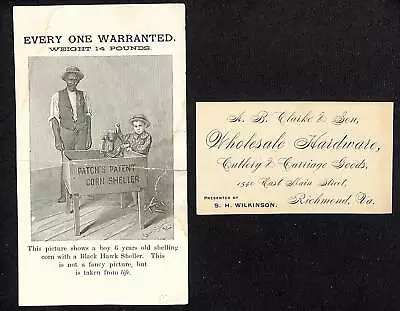 EVERY ONE WARRANTED.
WEIGHT 14 POUNDS.
PATCH'S PATENT
CORN SHELLER
This picture shows a boy 6 years old shelling
corn with a Black Hawk Sheller. This
is not a fancy picture, but
is taken from life.
A. B. Clarke & Son,
Wholesale Hardware,
Cutlery & Carriage Goods,
1540 East Main Street,
Richmond, Va.
PRESENTED BY
S. H. WILKINSON.